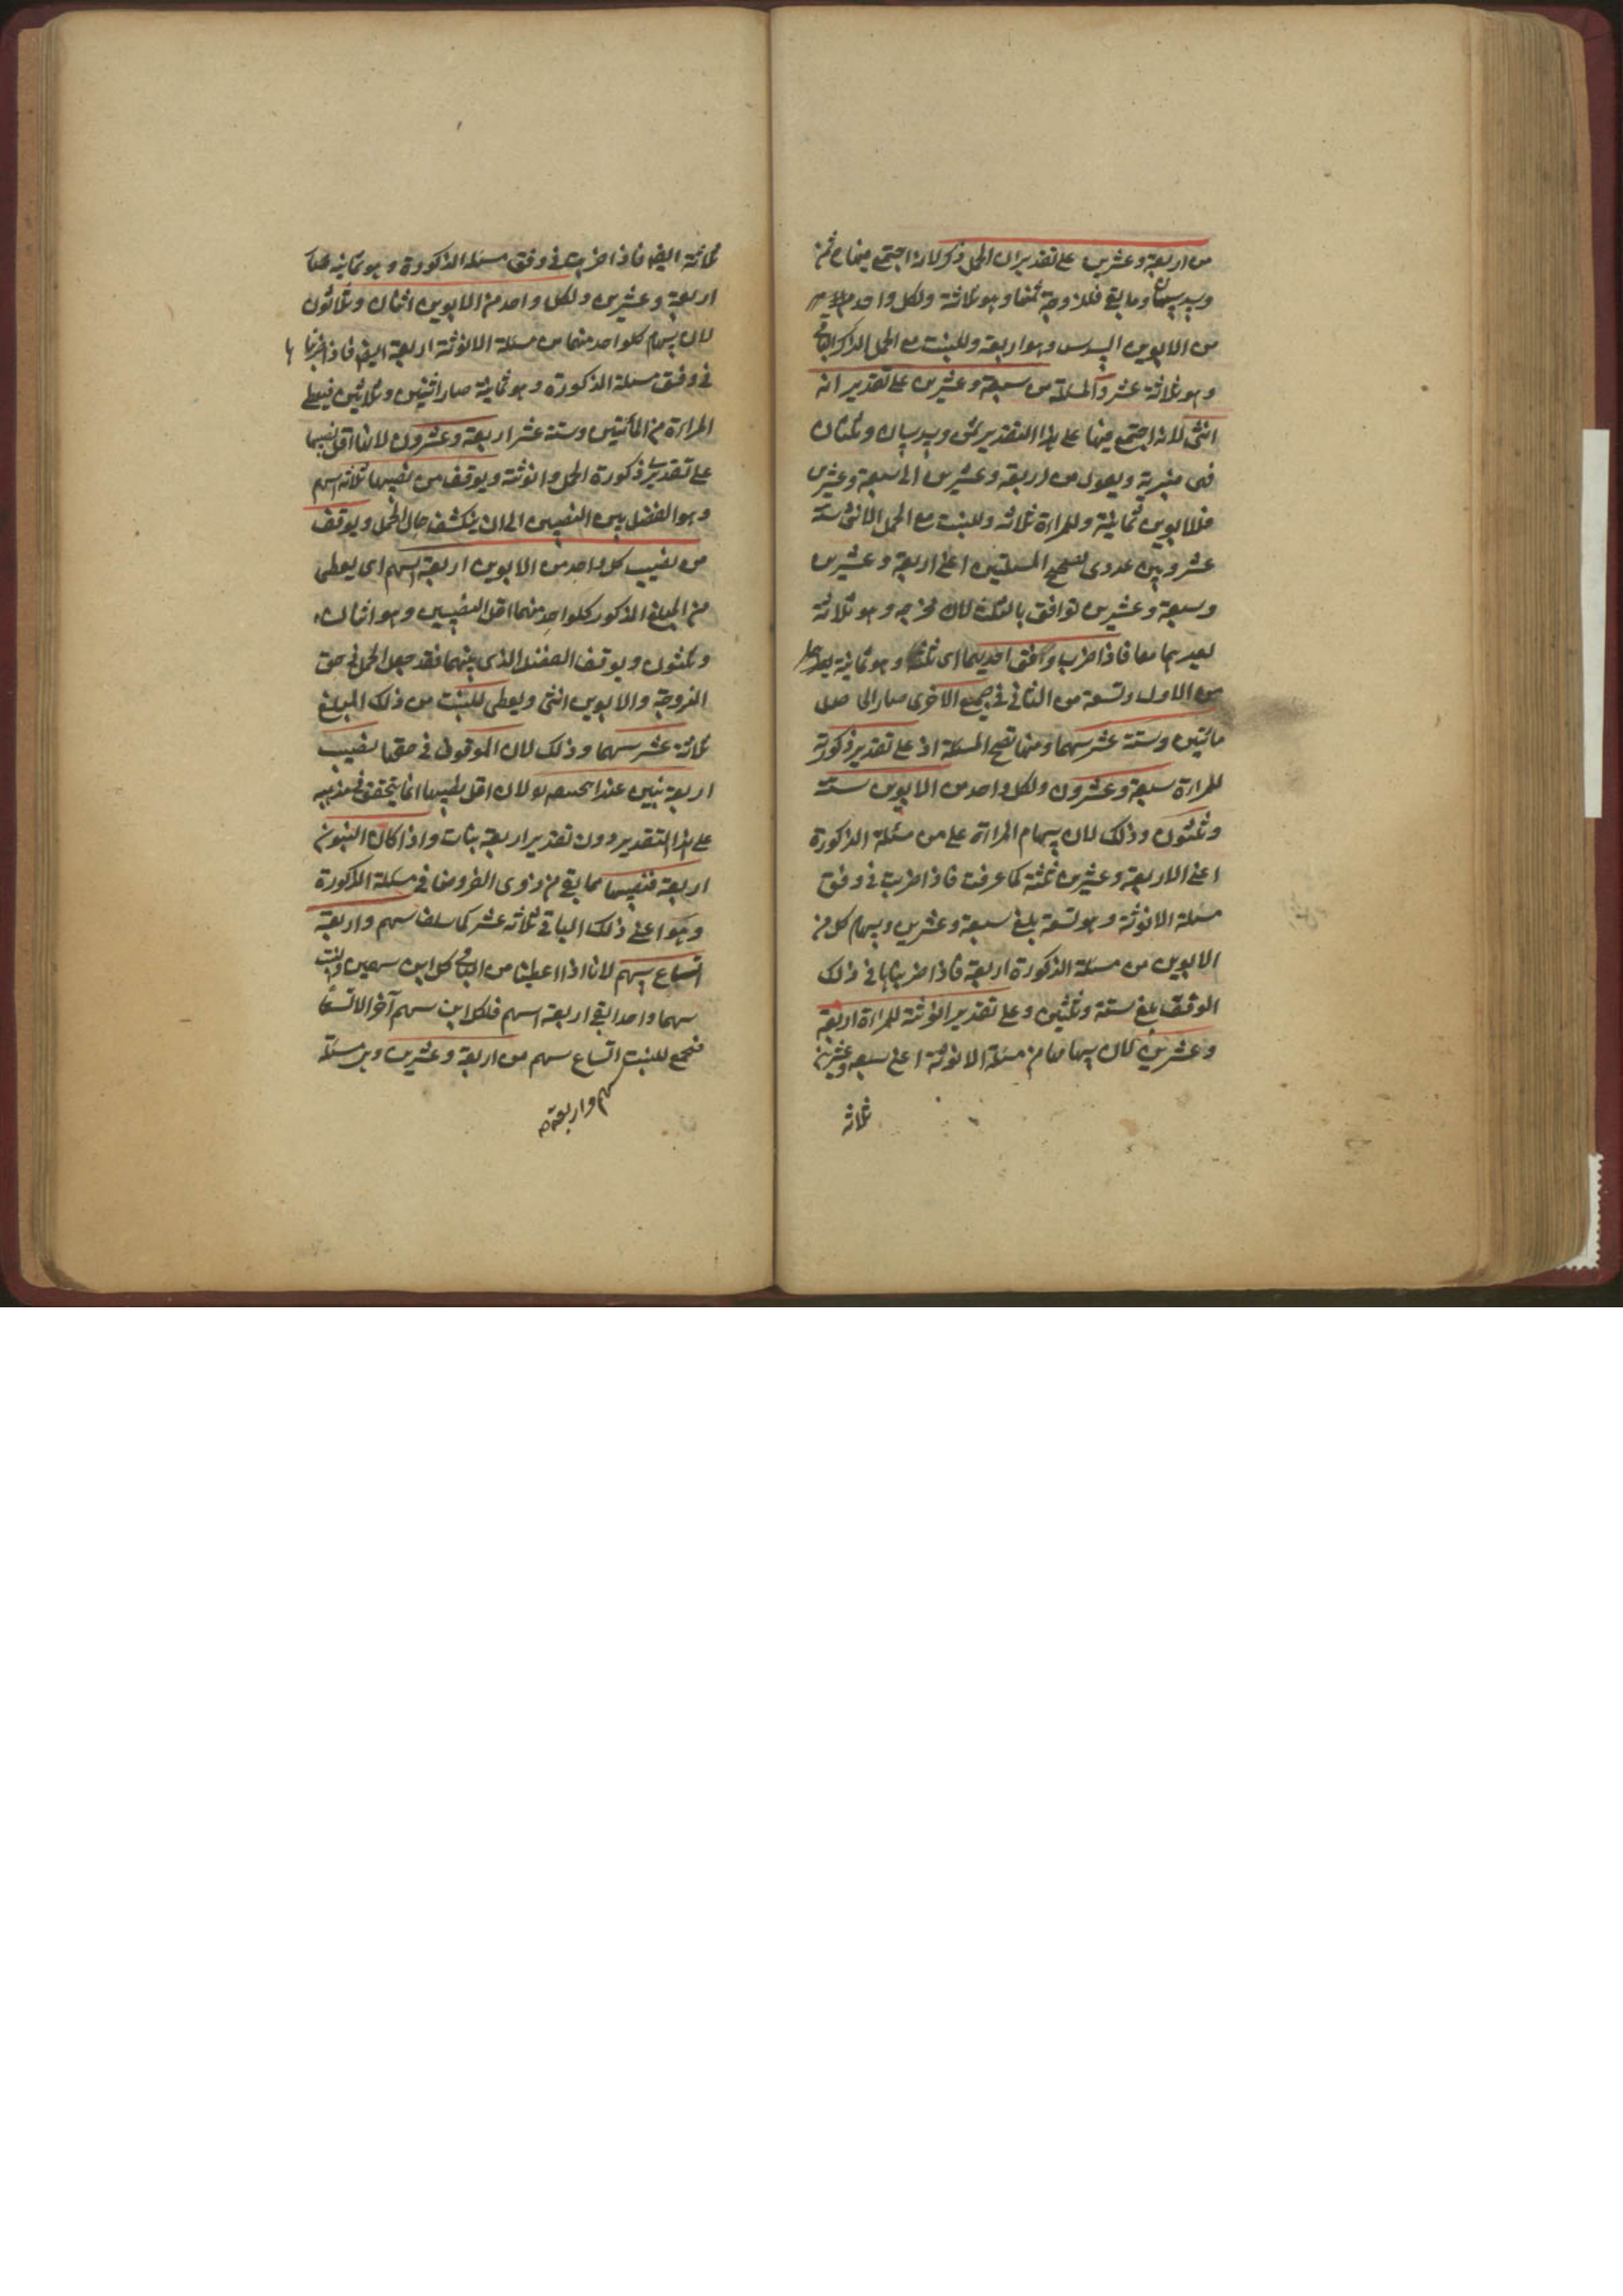 من اربعة وعشرين على تقدير ان الحمل ذكر لانه اجتمع فيها ح ثمن
وسدسان وما بقى فللزوجة ثمنها وهو ثلاثة ولكل واحد
من الابوين السدس وهو اربعة وللبنت مع الحمل الذكر الباقى
وهو ثلاثة عشر والمسئلة من سبعة وعشرين على تقدير انه
انثى لانه اجتمع فيها على هذا التقدير ثمن وسدسان وثلثان
فهى منبرية ويعول من اربعة وعشرين الى سبعة وعشرين
فللابوين ثمانية وللمراة ثلاثة وللبنت مع الحمل الانثى ستة
عشر وبين عددى تصحيح المسئلتين اعنى اربعة وعشرين
وسبعة وعشرين توافق بالثلث لان مخرجه وهو ثلاثة
يعدهما معا فاذا ضرب وفق احديهما اى ثلثها وهو ثمانية
من الاول وتسعة من الثانى فى جميع الاخرى صار الحاصل
مائتين وستة عشر سهما ومنها تصح المسئلة اذ على تقدير ذكورته
للمراة سبعة وعشرون ولكل واحد من الابوين ستة
وثلثون وذلك لان سهام المراة على من مسئلة الذكورة
اعنى الاربعة وعشرين ثلثة كما عرفت فاذا ضربت فى وفق
مسئلة الانوثة وهو تسعة بلغ سبعة وعشرين وسهام كل من
الابوين من مسئلة الذكورة اربعة فاذا ضربناها فى ذلك
الوفق بلغ ستة وثلثين وعلى تقدير انوثته للمراة اربعة
وعشرين لان سهامها من مسئلة الانوثة اعنى سبعة وعشرين
ثلاثة
ثلاثة ايضا فاذا ضربت فى وفق مسئلة الذكورة وهو ثمانية
اربعة وعشرين ولكل واحد من الابوين اثنان وثلاثون
لان سهام كلواحد منهما من مسئلة الانوثة اربعة ايضا فاذا ضربناها
فى وفق مسئلة الذكورة وهو ثمانية صار اثنين وثلاثين فيعطى
المراة من المائتين وستة عشر اربعة وعشرون لانها اقل نصيبها
على تقديرى ذكورة الحمل وانوثته ويوقف من نصيبها ثلاثة اسهم
وهو الفضل بين النصيبين الى ان ينكشف حال الحمل ويوقف
من نصيب كل واحد من الابوين اربعة اسهم اى يعطى
من المبلغ المذكور كلواحد منهما اقل النصيبين وهو اثنان
وثلثون ويوقف الفضل الذى بينهما فقد جعل الحمل فى حق
الزوجة والابوين انثى ويعطى للبنت من ذلك المبلغ
ثلاثة عشر سهما وذلك لان الموقوف فى حقها نصيب
اربعة بنين عند ابى حنيفة لان اقل نصيبها انما يتحقق فى مذهبه
على هذا التقدير دون تقدير اربعة بنات واذا كان البنون
اربعة فنصيبها مما بقى من ذوى الفروض فى مسئلة الذكورة
وهو اعنى ذلك الباقى ثلاثة عشر كما سلف سهم واربعة
اتساع سهم لانا اذا اعطينا من الباقى كل ابن سهمين والبنت
سهما واحدا بقى اربعة اسهم فلكل ابن سهم آخر الا تسعا
فجمع للبنت اتساع سهم من اربعة وعشرين وبن مسئلة
سهم واربعة